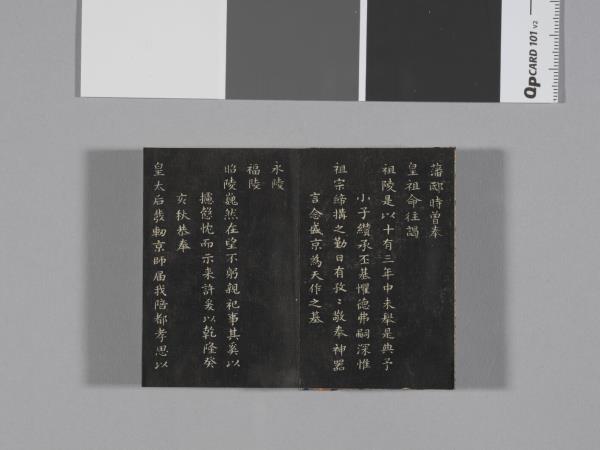 QPCARD 101 v2
藩邸時曾奉
皇祖命往謁
祖陵是以十有三年中未舉是典予
小子纘承丕基懼德弗嗣深惟
祖宗締搆之勤日有孜〻敬奉神器
言念盛京為天作之基
永陵
福陵
昭陵巍然在望不躬親祀事其奚以
攄慤忱而示来許爰以乾隆癸
亥秋恭奉
皇太后發軔京師届我陪都孝思以